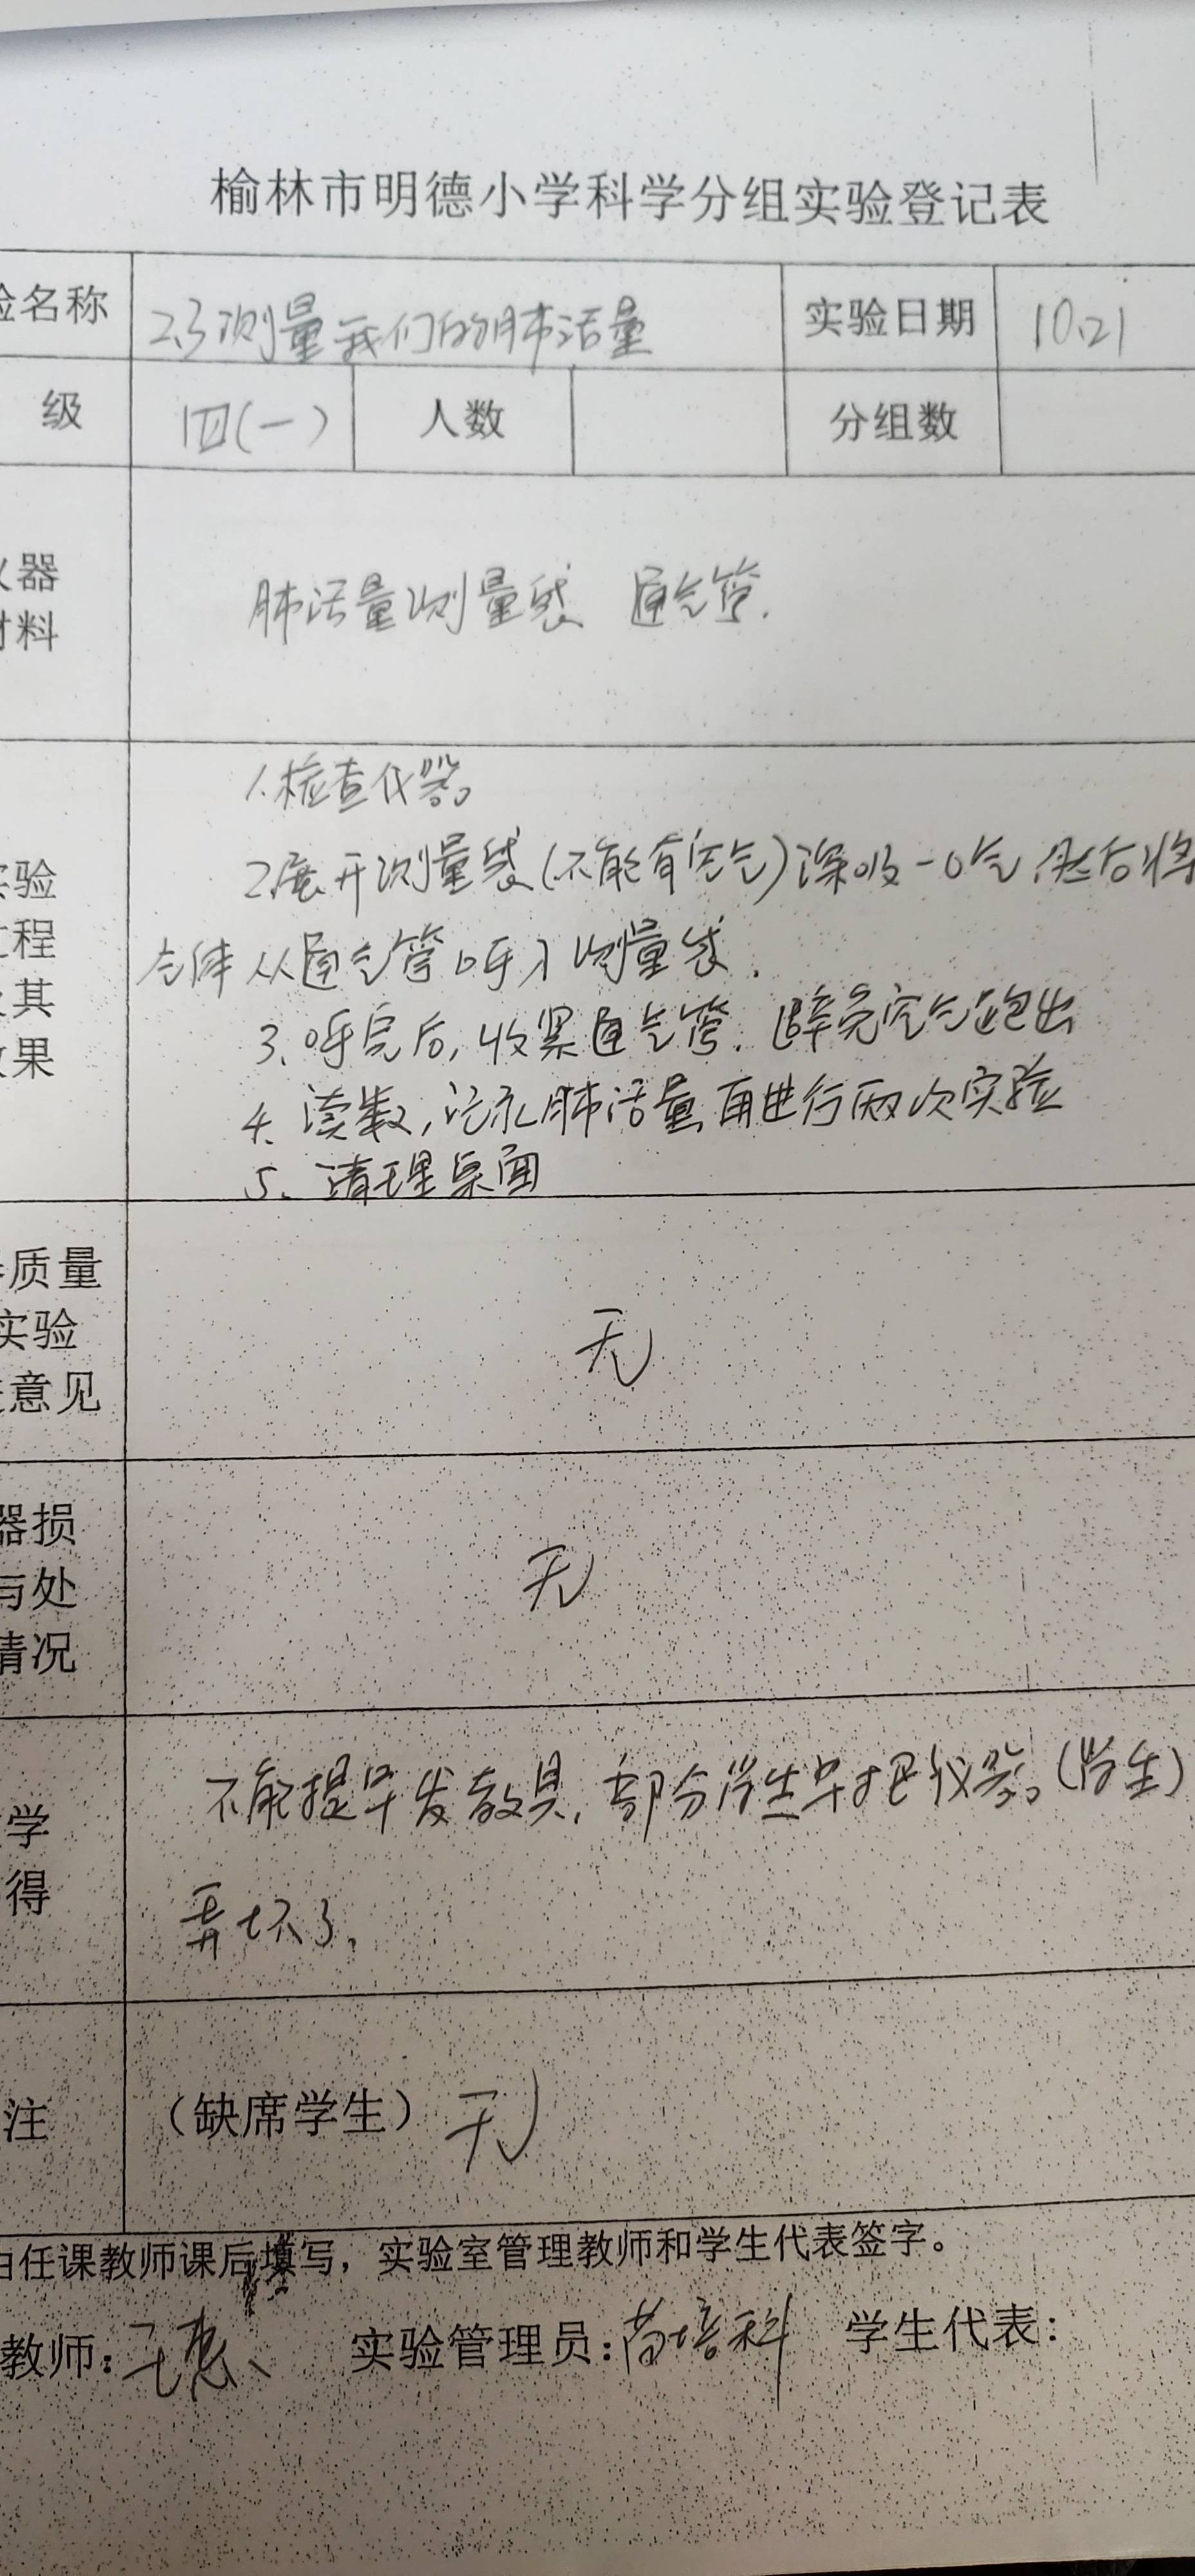 榆林市明德小学科学分组实验登记表
验名称 2.3测量我们的肺活量 实验日期 10.21
级 四(一) 人数 分组数
仪器
材料
肺活量测量袋 通气管.
实验
过程
及其
效果
1.检查仪器。
2.展开测量袋(不能有空气)深吸一口气,然后将
气体从通气管呼入测量袋.
3、呼完后,收紧通气管.避免空气跑出
4.读数,记录肺活量,再进行两次实验
5、清理桌面
质量
实验
意见
无
器损
与处
情况
无
学
得
不能提早发教具,部分学生早把仪器。(学生)
弄坏了,
注 (缺席学生) 无
由任课教师课后填写,实验室管理教师和学生代表签字。
教师: 实验管理员:苗培科 学生代表: